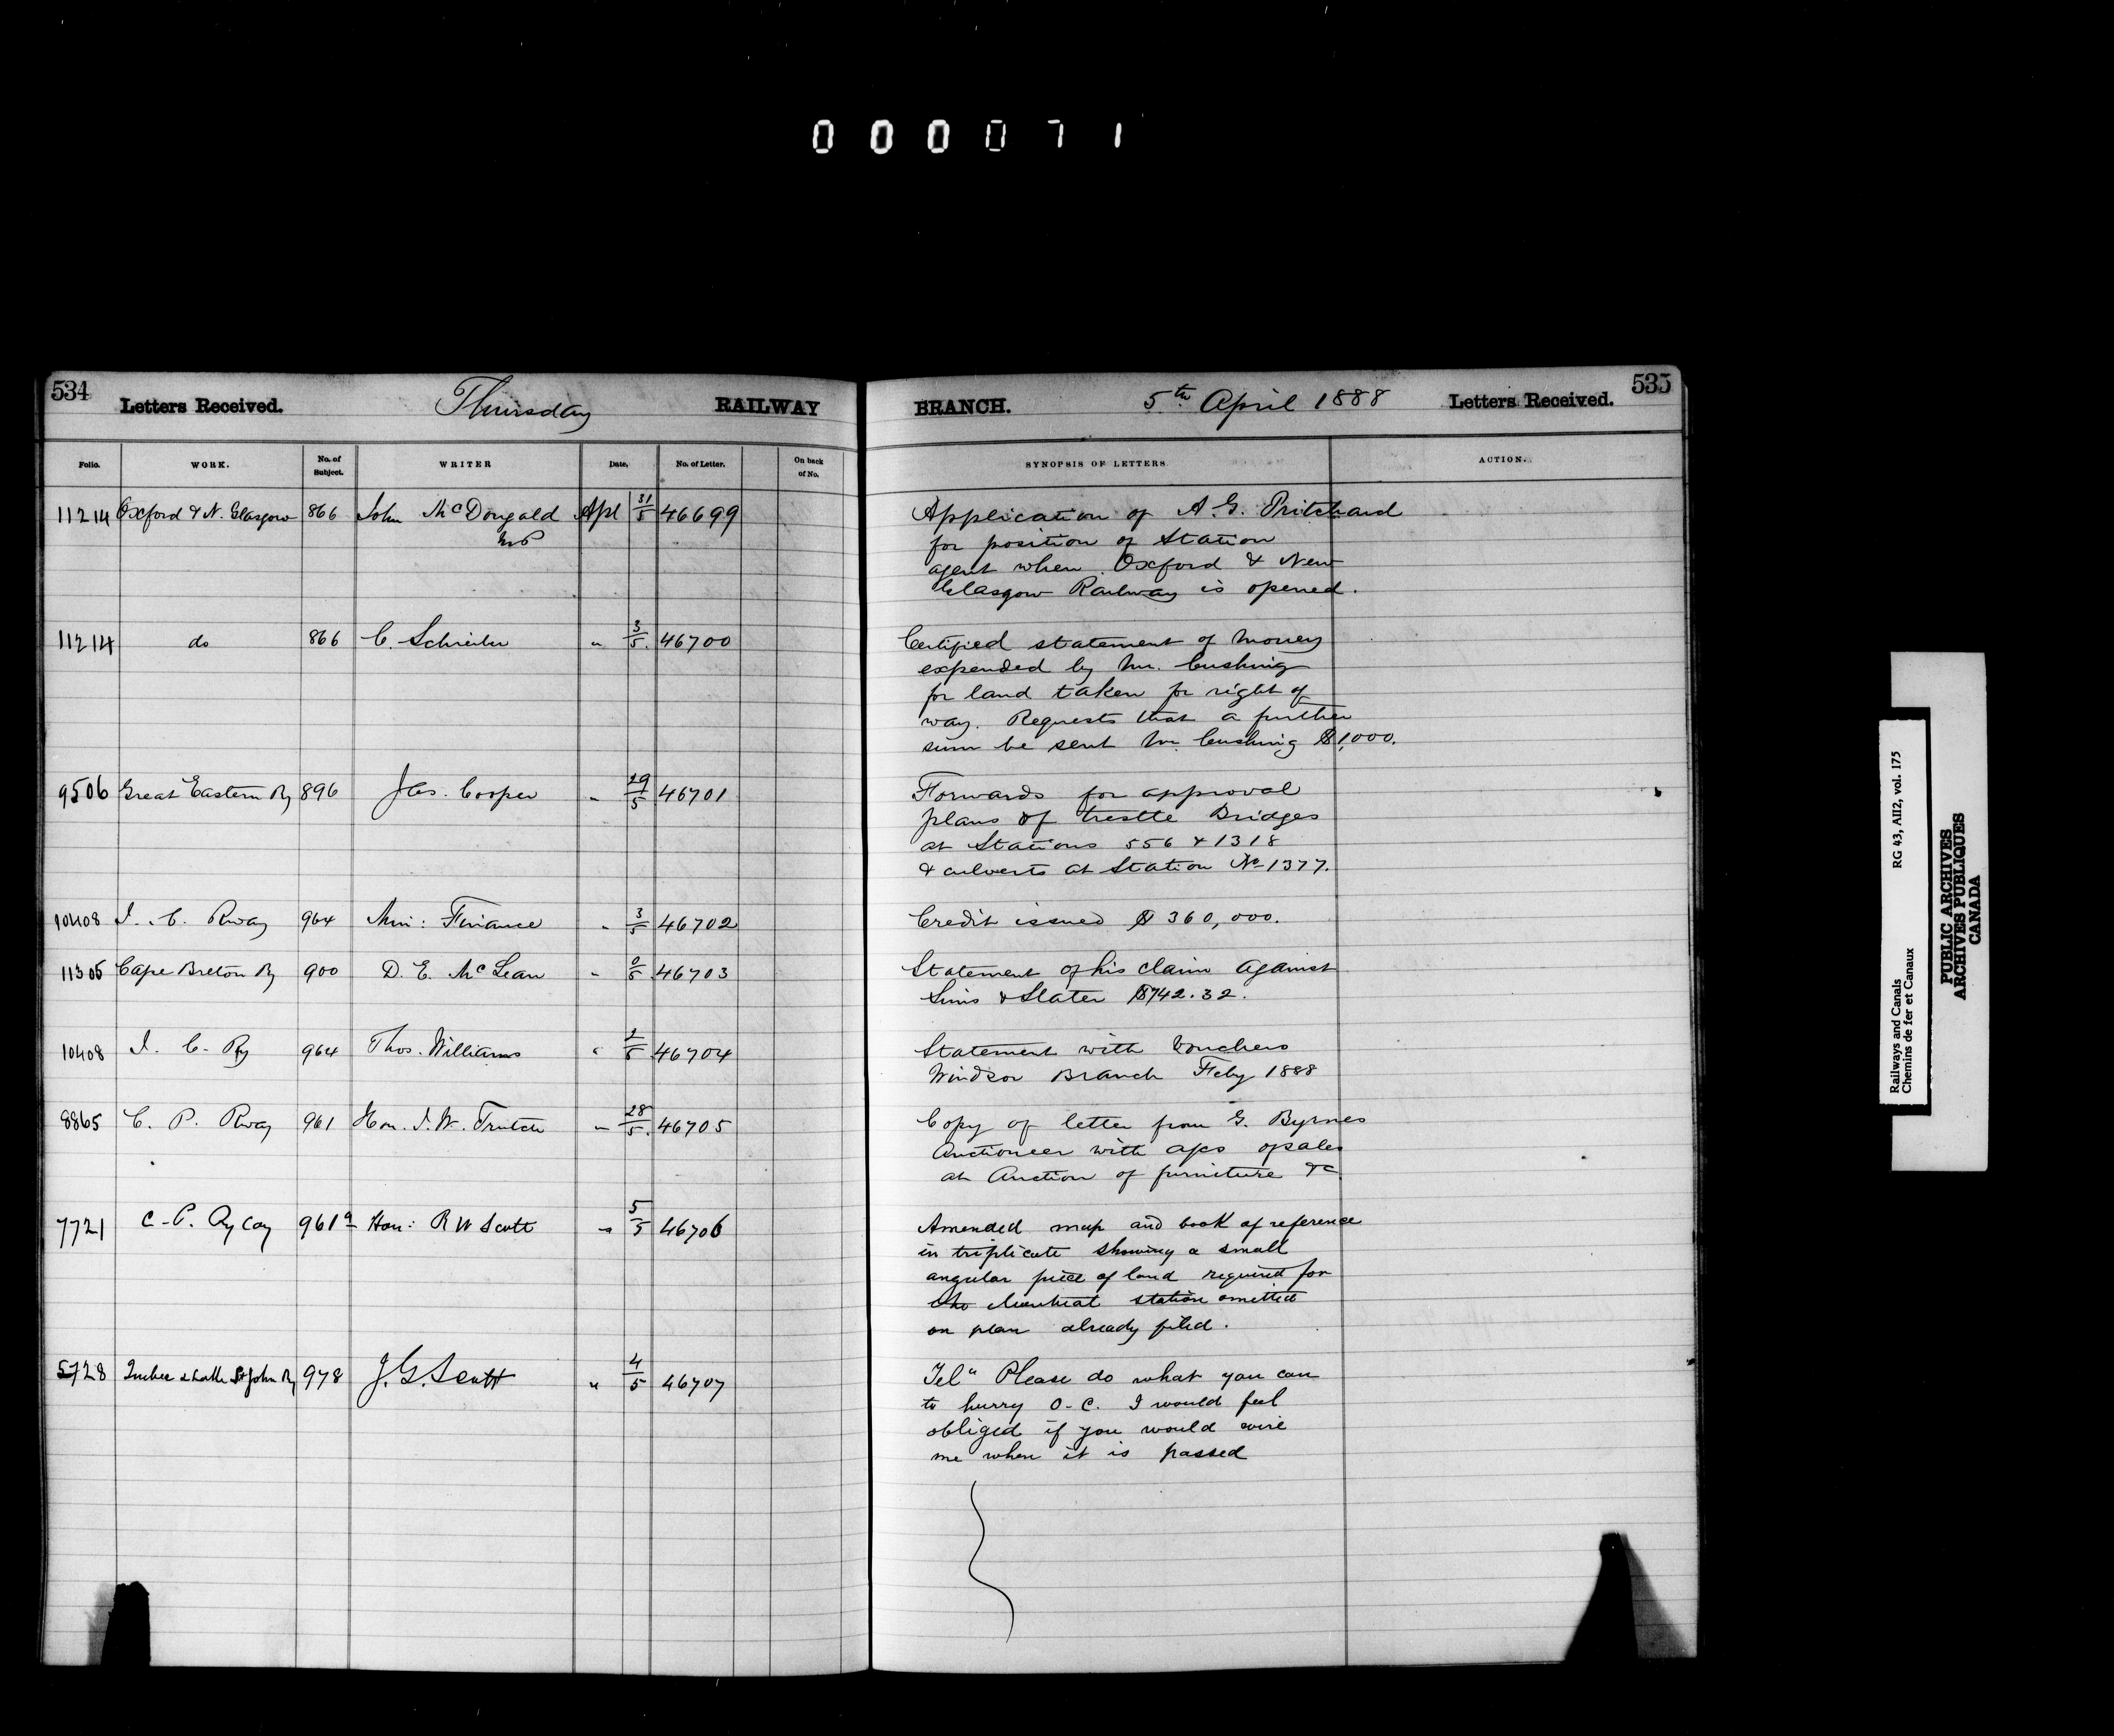 000071
534
Letters Received. Thursday RAILWAY
BRANCH. 5th April 1888 Letters Received. 535
Folio. WORK. No. of Subject. WRITER Date, No. of Letter. On back of No.
SYNOPSIS OF LETTERS ACTION.
11214 Oxford & N. Glasgow 866 John McDougald MP Apl 31/5 46699
Application of A. G. Pritchard
for position of Station
agent when Oxford & New
Glasgow Railway is opened.
11214 do 866 C. Schreiber " 3/5 46700
Certified statement of money
expended by Mr. Cushing
for land taken for right of
way. Requests that a further
sum be sent Mr. Cushing $1,000.
9506 Great Eastern Ry 896 Jas. Cooper " 29/5 46701
Forwards for approval
plans of trestle Bridges
at Stations 556 & 1318
& culverts at Station No 1377.
10408 I. C. Rway 964 Min: Finance " 3/5 46702
Credit issued $360,000.
11305 Cape Breton Ry 900 D. E. McLean " 0/5 46703
Statement of his claim against
Sims & Slater $742.32.
10408 I. C. Ry 964 Thos. Williams " 2/5 46704
Statement with Vouchers
Windsor Branch Feby 1888
8865 C. P. Rway 961 Hon. J. W. Trutch " 28/5 46705
Copy of letter from G. Byrnes
Auctioneer with a/cs of sales
at Auction of furniture &c
7721 C. P. Ry Coy 961a Hon: R W Scott " 5/5 46706
Amended map and book of reference
in triplicate showing a small
angular piece of land required for
the Montreal station omitted
on plan already filed.
5728 Quebec & Lake St John Ry 978 J. G. Scott " 4/5 46707
Tel" Please do what you can
to hurry O-C. I would feel
obliged if you would wire
me when it is passed
Railways and Canals RG 43, AII2, vol. 175
Chemins de fer et Canaux
PUBLIC ARCHIVES
ARCHIVES PUBLIQUES
CANADA